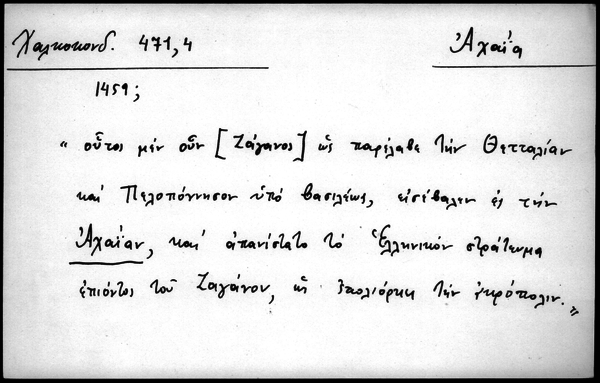 Χαλκοκονδ. 471,4
Ἀχαΐα
1459;
“ οὗτος μὲν οὖν [Ζάγανος] ὡς παρέλαβε τὴν Θετταλίαν
καὶ Πελοπόννησον ὑπὸ βασιλέως, εἰσέβαλεν ἐς τὴν
Ἀχαΐαν, καὶ ἀπανίστατο τὸ Ἑλληνικὸν στράτευμα
ἐπιόντος τοῦ Ζαγάνου, ὡς ἐπολιόρκει τὴν ἀκρόπολιν.”